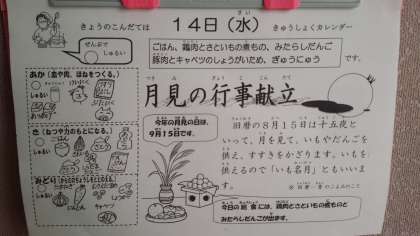 きょうのこんだては
14日(水)
きゅうしょくカレンダー
ぜんぶで
しゅるい
ごはん、鶏肉とさといもの煮もの、みたらしだんご
豚肉とキャベツのしょうがいため、ぎゅうにゅう
です。
あか(血や肉、ほねをつくる。)
しゅるい
き(ねつや力のもとになる。)
しゅるい
みどり
しゅるい
キャベツ
月見の行事献立
今年の月見の日は、
9月15です。
旧暦の8月15日は十五夜と
いって、月を見て、いもやだんごを
供え、すすきをかざります。いもを
供えるので「いも名月」ともいいま
す。
今日の給食には、鶏肉とさといもの煮ものと
みたらしだんごが出ます。